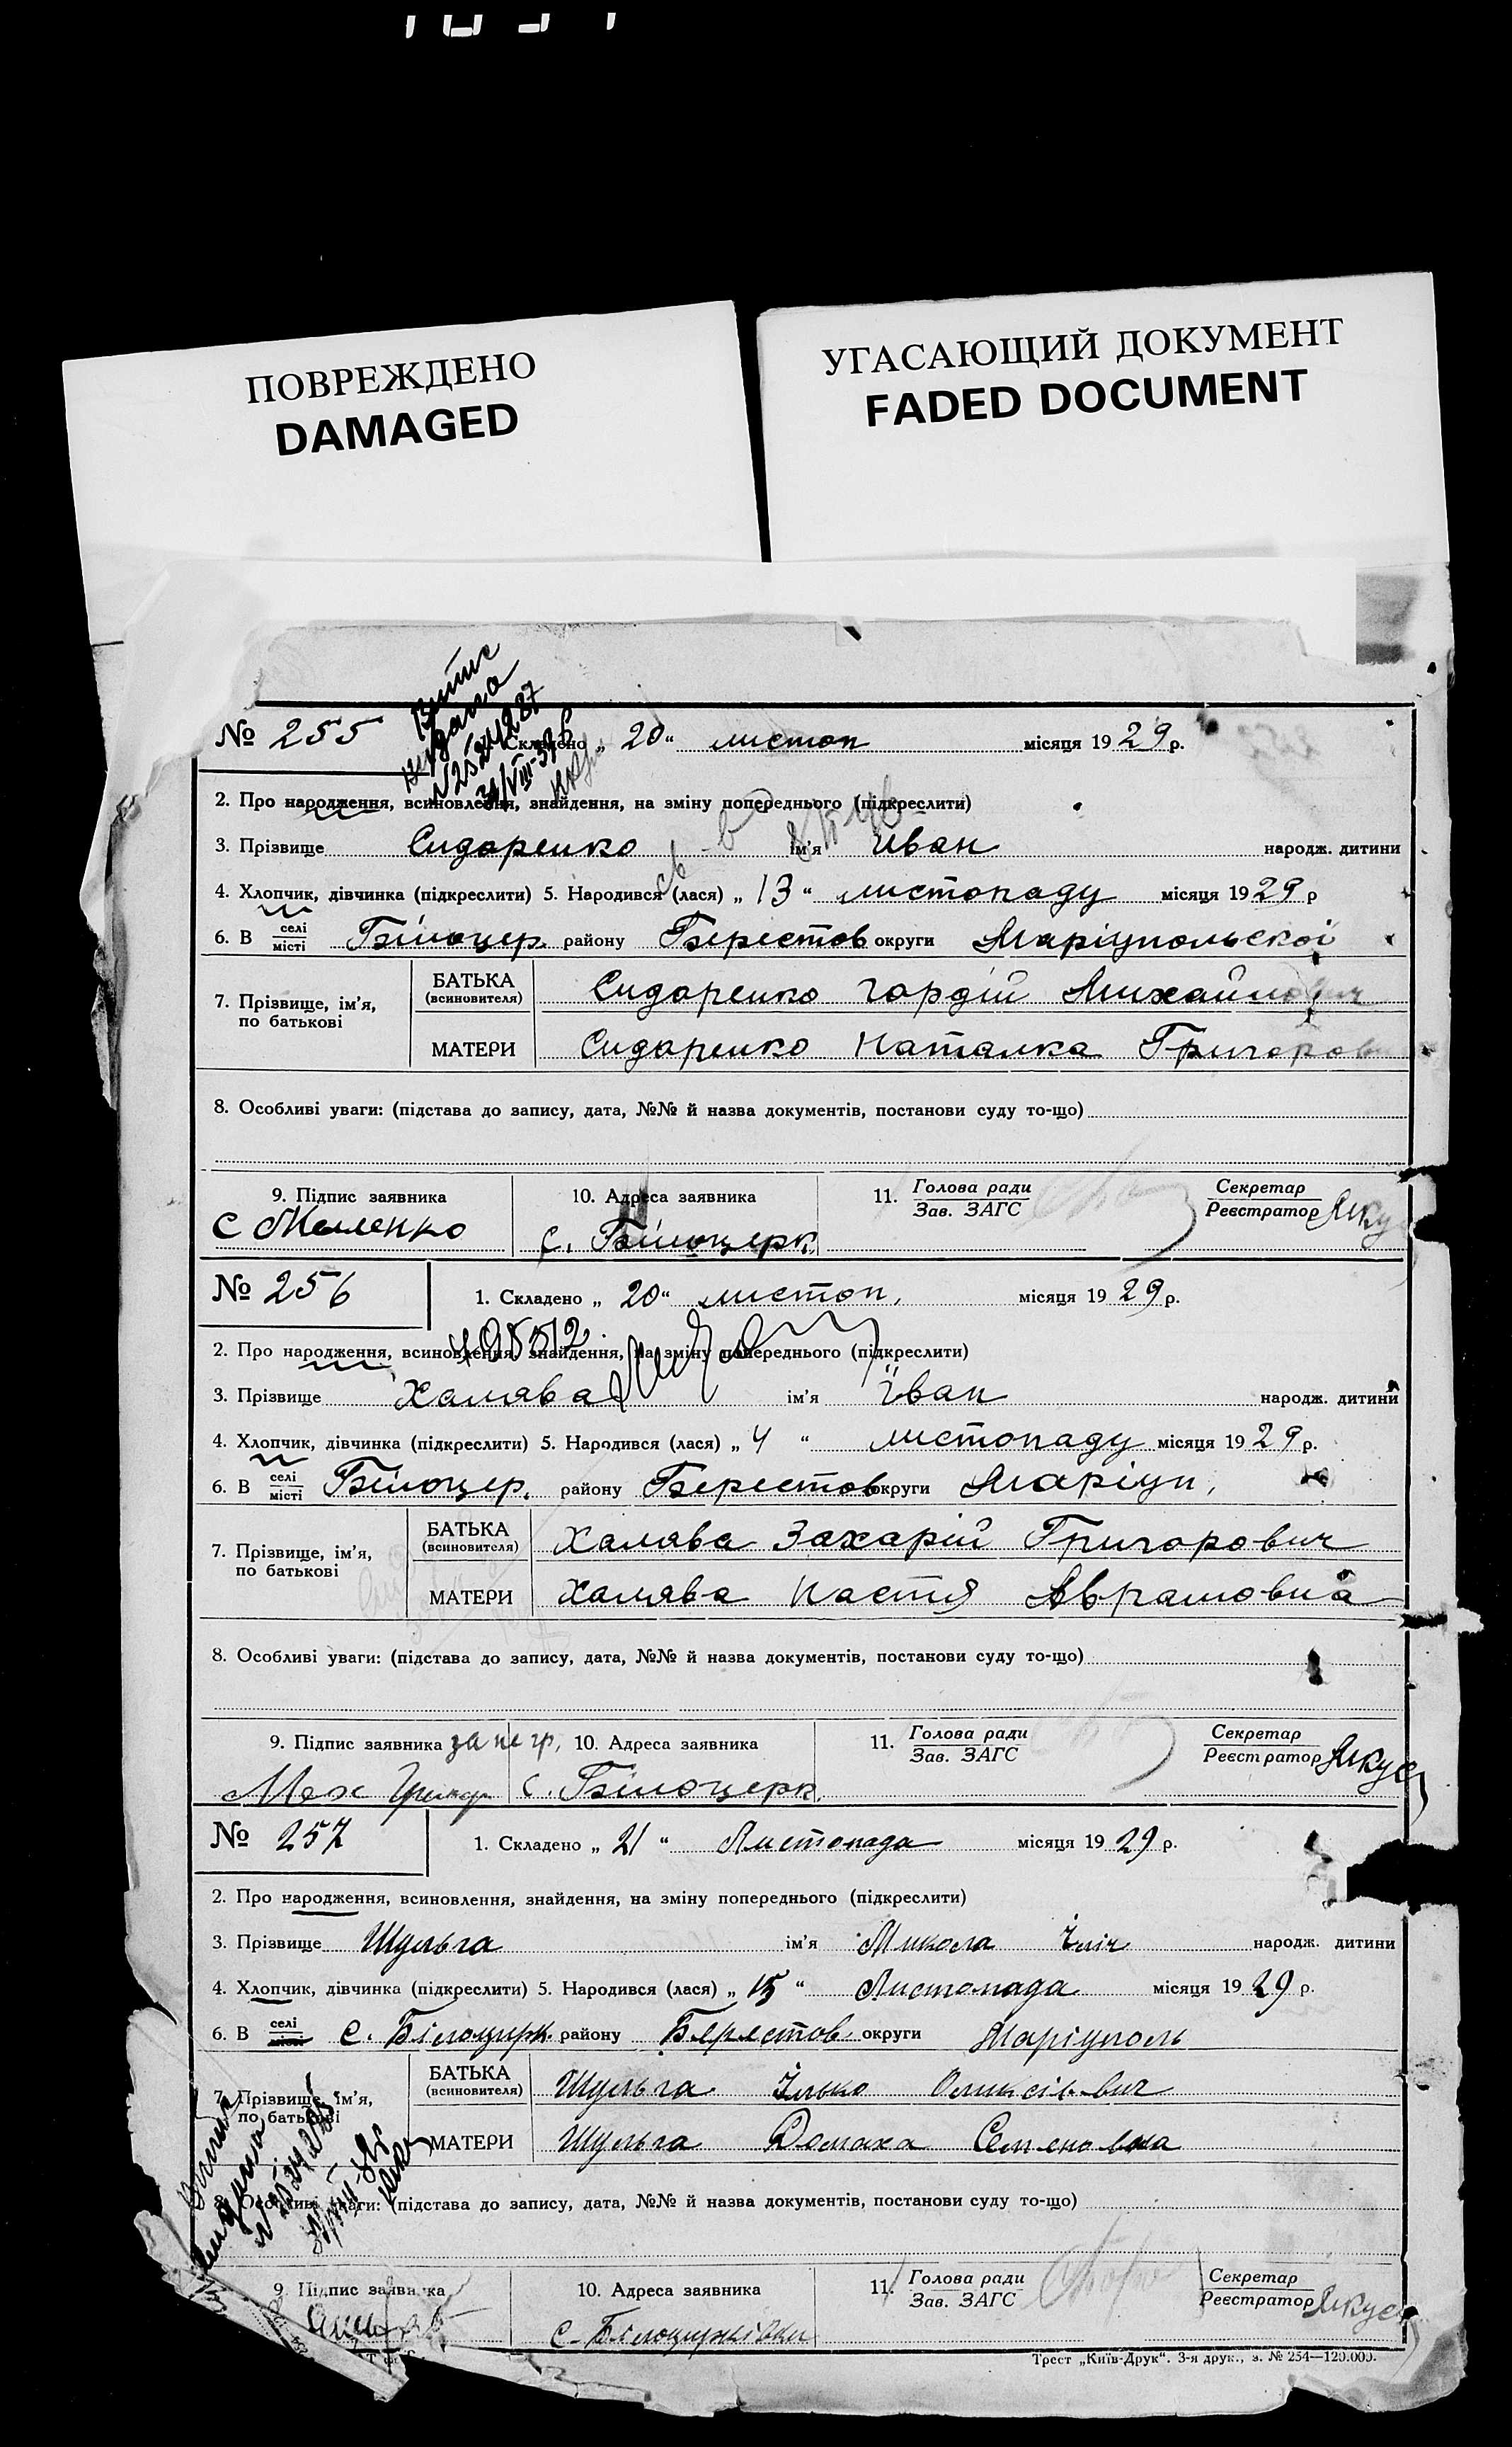 ПОВРЕЖДЕНО
DAMAGED
УГАСАЮЩИЙ ДОКУМЕНТ
FADED DOCUMENT
№ 255
Складено „ 20 “ листоп місяця 1929 р.
2. Про народження, всиновлення, знайдення, на зміну попереднього (підкреслити)
3. Прізвище Сидоренко ім'я Иван народж. дитини
4. Хлопчик, дівчинка (підкреслити) 5. Народився (лася) „ 13 “ листопаду місяця 1929 р
6. В селі/місті Білоцер. району Берестов округи Маріупольскої
7. Прізвище, ім'я, по батькові
БАТЬКА (всиновителя) Сидоренко Гордій Михайлович
МАТЕРИ Сидоренко Наталка Григоров
8. Особливі уваги: (підстава до запису, дата, №№ й назва документів, постанови суду то-що)
9. Підпис заявника 10. Адреса заявника 11. Голова ради/Зав. ЗАГС Секретар/Реєстратор
с. Білоцерк
№ 256
1. Складено „ 20 “ листоп, місяця 1929 р.
2. Про народження, всиновлення, знайдення, на зміну попереднього (підкреслити)
3. Прізвище Халява ім'я Їван народж. дитини
4. Хлопчик, дівчинка (підкреслити) 5. Народився (лася) „ 4 “ листопаду місяця 1929 р.
6. В селі/місті Білоцер. району Берестов округи Маріуп,
7. Прізвище, ім'я, по батькові
БАТЬКА (всиновителя) Халява Захарій Григорович
МАТЕРИ Халява Настя Аврамовна
8. Особливі уваги: (підстава до запису, дата, №№ й назва документів, постанови суду то-що)
9. Підпис заявника за негр, 10. Адреса заявника 11. Голова ради/Зав. ЗАГС Секретар/Реєстратор
с. Білоцерк.
№ 257
1. Складено „ 21 “ Листопада місяця 1929 р.
2. Про народження, всиновлення, знайдення, на зміну попереднього (підкреслити)
3. Прізвище Шульга ім'я Микола Їліч народж. дитини
4. Хлопчик, дівчинка (підкреслити) 5. Народився (лася) „ 15 “ Листопада місяця 1929 р.
6. В селі/місті с. Білоцирк. району Берестов. округи Маріуполь
7. Прізвище, ім'я, по батькові
БАТЬКА (всиновителя) Шульга Їлько Оликсієвич
МАТЕРИ Шульга Домаха Семеновна
Особливі уваги: (підстава до запису, дата, №№ й назва документів, постанови суду то-що)
9. Підпис заявника 10. Адреса заявника 11. Голова ради/Зав. ЗАГС Секретар/Реєстратор
с. Білоцирківки
Трест „Київ-Друк“. 3-я друк., з. № 254—120.000.